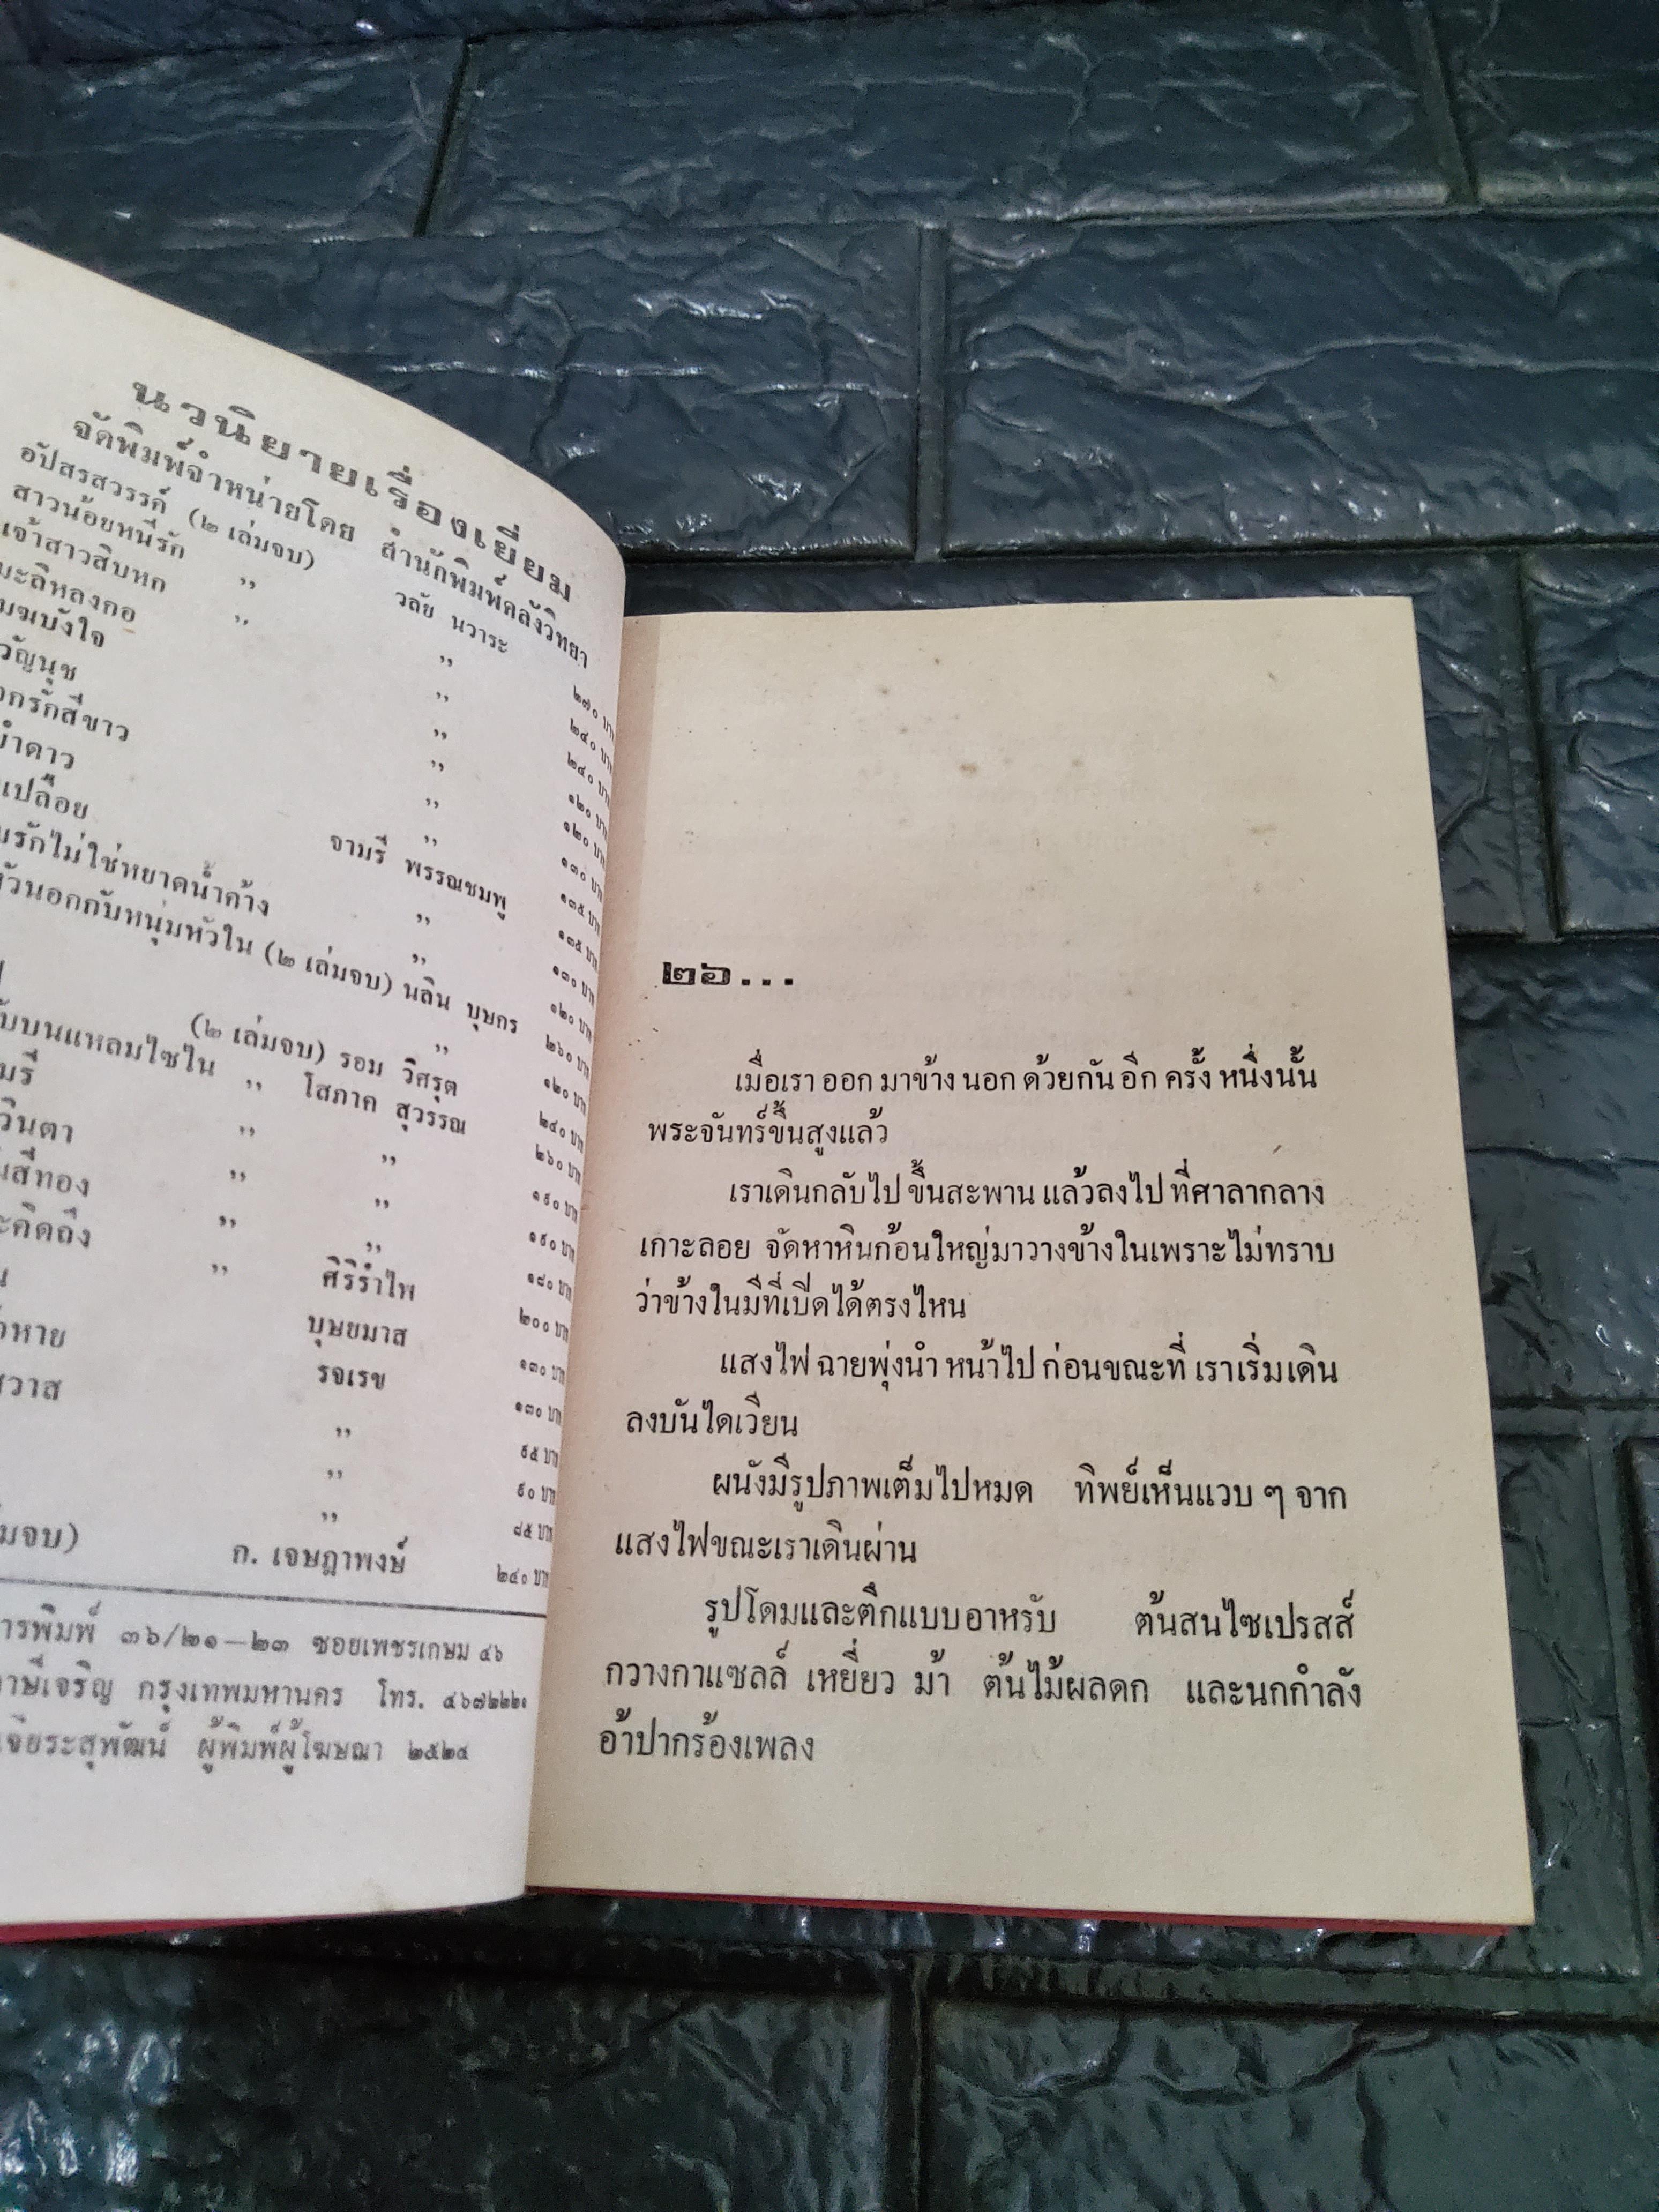 นวนิยายเรื่องเยี่ยม
จัดพิมพ์จำหน่ายโดย สำนักพิมพ์คลังวิทยา
อัปสรสวรรค์ (๒ เล่มจบ) วลัย นวาระ ๒๗๐
สาวน้อยหนีรัก ,, ,, ๒๔๐
เจ้าสาวสิบหก ,, ,, ๒๔๐
มะลิหลงกอ ,, ๑๒๐
บังใจ ,, ๑๒๐
ขวัญนุช ,, ๑๓๐
รักสีขาว ,, ๑๓๕
ดาว จามรี พรรณชมพู ๑๓๕
เปลือย ,, ๑๓๐
รักไม่ใช่หยาดน้ำค้าง ,, ๑๒๐
หัวนอกกับหนุ่มหัวใน (๒ เล่มจบ) นลิน บุษกร ๒๖๐
,, ๑๒๐
(๒ เล่มจบ) รอม วิศรุต ๒๔๐
บนแหลมไซไน ,, โสภาค สุวรรณ ๒๖๐
,, ,, ๑๙๐
สีทอง ,, ,, ๑๙๐
คิดถึง ,, ,, ๑๘๐
,, ศิริรำไพ ๒๐๐
หาย บุษยมาส ๑๓๐
สวาส รจเรข ๑๓๐
,, ๙๕ บาท
,, ๙๐ บาท
,, ๘๕ บาท
จบ) ก. เจษฎาพงษ์ ๒๔๐ บาท
การพิมพ์ ๓๖/๒๑—๒๓ ซอยเพชรเกษม ๔๖
ภาษีเจริญ กรุงเทพมหานคร โทร. ๔๖๗๒๒๒๑
เจียระสุพัฒน์ ผู้พิมพ์ผู้โฆษณา ๒๕๒๔
๒๖...
เมื่อเรา ออก มาข้าง นอก ด้วยกัน อีก ครั้ง หนึ่งนั้น
พระจันทร์ขึ้นสูงแล้ว
เราเดินกลับไป ขึ้นสะพาน แล้วลงไป ที่ศาลากลาง
เกาะลอย จัดหาหินก้อนใหญ่มาวางข้างในเพราะไม่ทราบ
ว่าข้างในมีที่เปิดได้ตรงไหน
แสงไฟ ฉายพุ่งนำ หน้าไป ก่อนขณะที่ เราเริ่มเดิน
ลงบันไดเวียน
ผนังมีรูปภาพเต็มไปหมด ทิพย์เห็นแวบ ๆ จาก
แสงไฟขณะเราเดินผ่าน
รูปโดมและตึกแบบอาหรับ ต้นสนไซเปรสส์
กวางกาแซลล์ เหยี่ยว ม้า ต้นไม้ผลดก และนกกำลัง
อ้าปากร้องเพลง